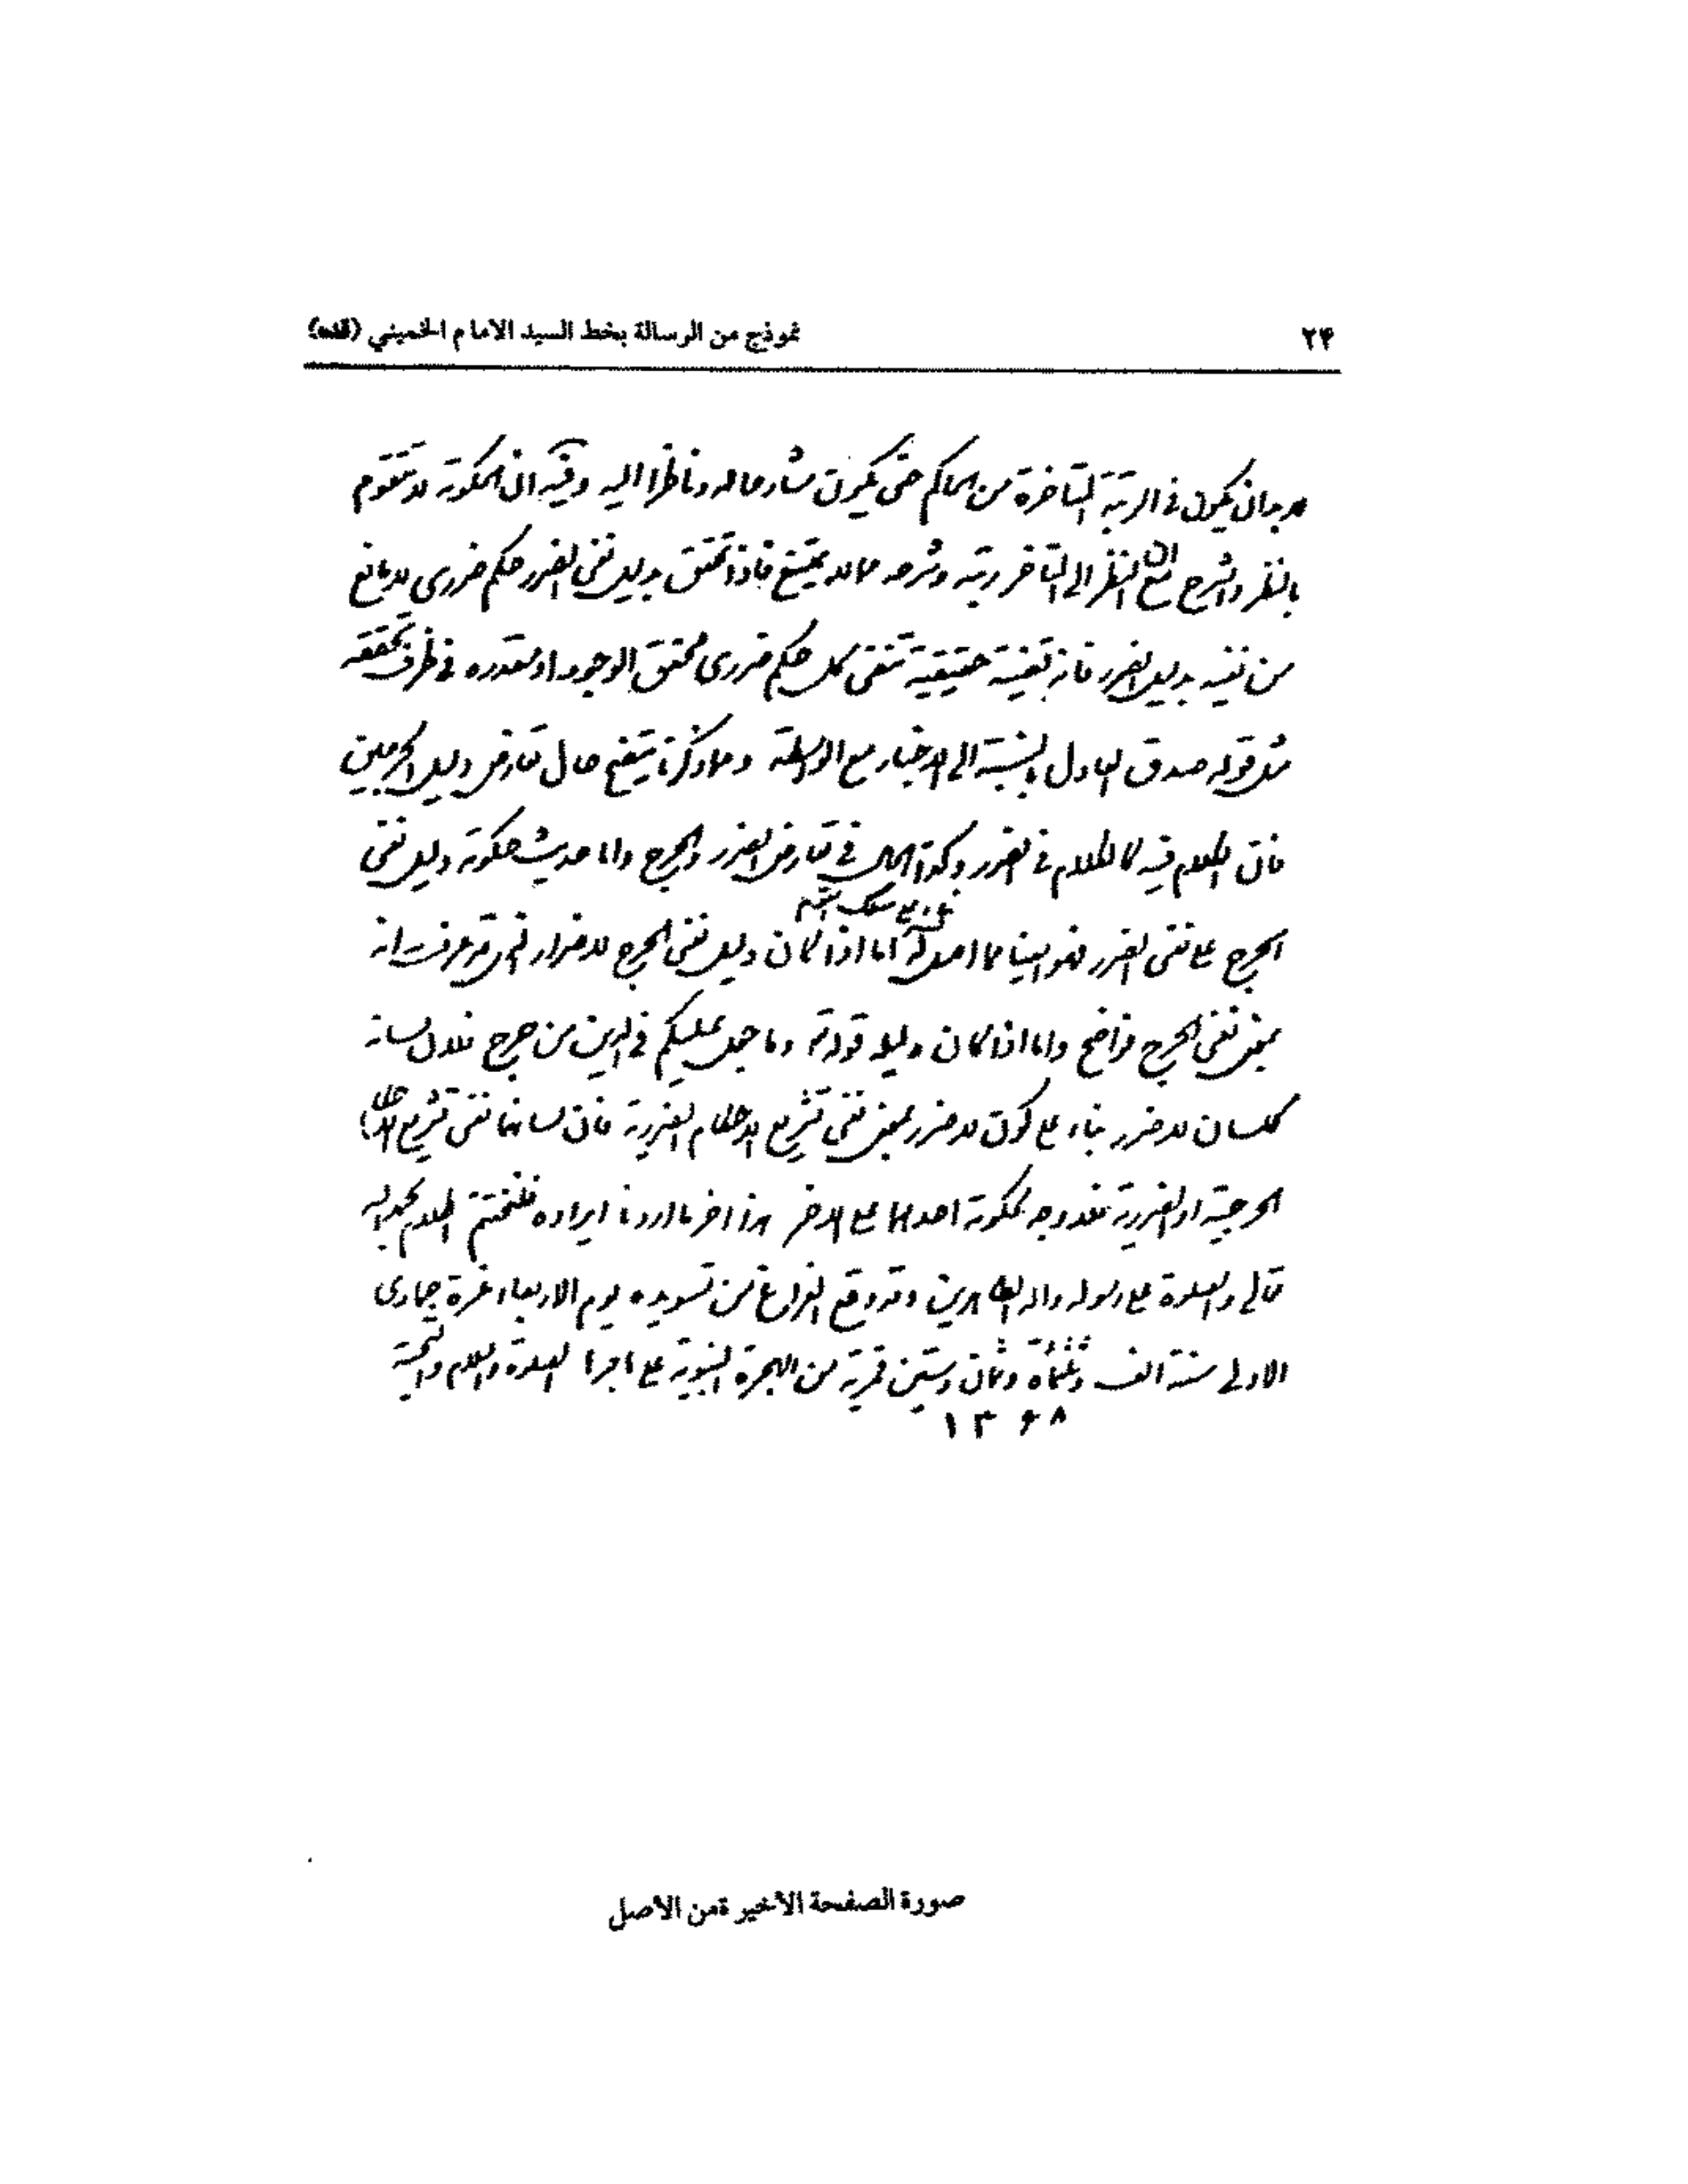 ٢۴
نموذج من الرسالة بخط السيد الامام الخميني (قده)
لا بد ان يكون في الرتبة المتأخرة من المحاكم حتى يكون شارحا له وناظرا اليه وفيه ان الحكومة لا تتقوم
بالنظر والشرح مع ان النظر الى المتأخر رتبة وشرحه حاله يمتنع فاذا تحقق بدليل نفى الضرر حكم ضررى لا مانع
من نفيه بدليل الضرر فانه قضية حقيقية تنفى كل حكم ضررى محقق الوجود او مقدره في ظرف تحققه
مثل قوله صدق العادل بالنسبة الى الاخبار مع الواسطة ومما ذكرنا يتضح حال تعارض دليل الحرجين
فان الكلام فيه كالكلام في الضرر وكذا الحال في تعارض الضرر والحرج واما حديث حكومة دليل نفى
الحرج على نفى الضرر فهو ايضا مما لا اصل له اما اذا كان دليل نفى الحرج لا ضرار الذى قد عرفت انه
بناء على مسلك القوم
بمعنى نفى الحرج فواضح واما اذا كان دليله قوله تع وما جعل عليكم في الدين من حرج فلان لسانه
كلسان لا ضرر بناء على كون لا ضرر بمعنى نفى تشريع الاحكام الضررية فان لسانهما نفى تشريع الاحكام
الحرجية او الضررية فلا وجه لحكومة احدهما على الاخر هذا اخر ما اردنا ايراده فلنختتم الكلام بحمد الله
تعالى والصلوة على رسوله واله الطاهرين وقد وقع الفراغ من تسويده يوم الاربعاء غرة جمادى
الاولى سنة الف وثلثمأة وثمان وستين قمرية من الهجرة النبوية على هاجرها الصلوة والسلام والتحية
١٣۶٨
صورة الصفحة الأخير ةمن الأصل